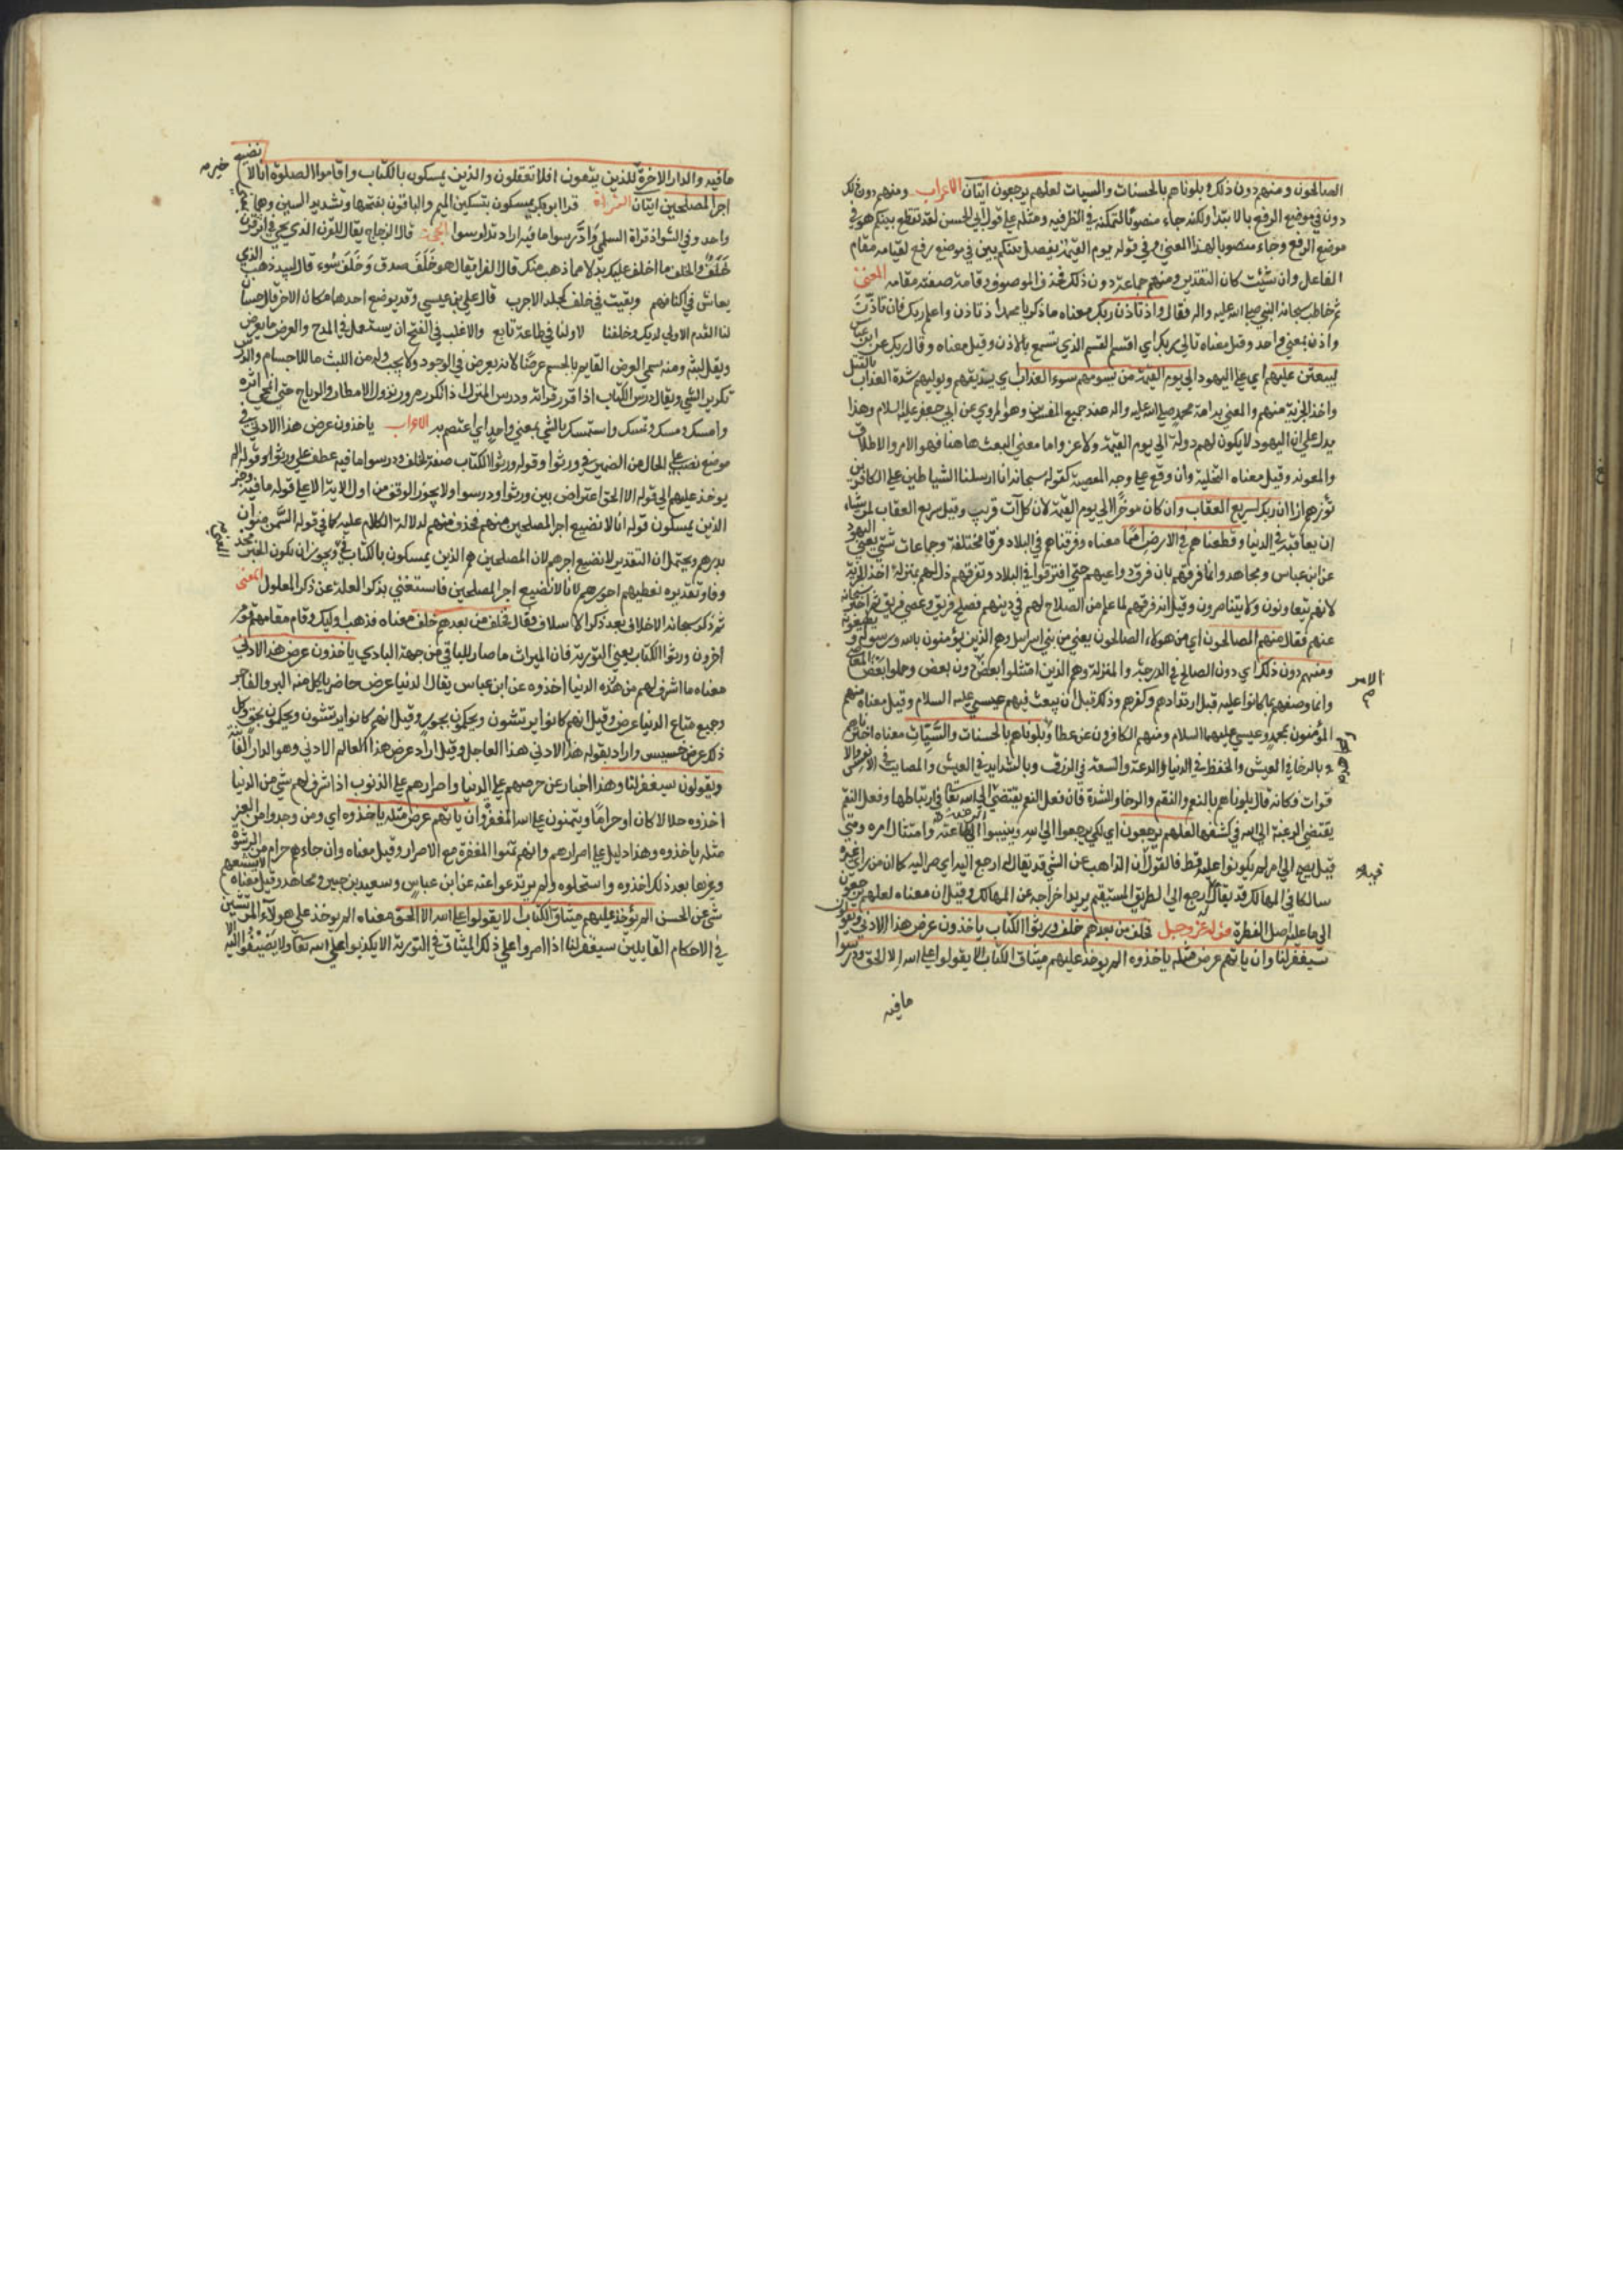 الصالحون ومنهم دون ذلك وبلوناهم بالحسنات والسيات لعلهم يرجعون ايتان الاعراب ومنهم دون ذلك
دون في موضع الرفع بالابتدا ولكنه جاء منصوبا لتمكنه في الظرفيه ومثله على قول ابي الحسن لقد تقطع بينكم هو في
موضع الرفع وجاء منصوبا لهذا المعنى وفي قوله يوم القيمة يفصل بينكم بين في موضع رفع لقيامه مقام
الفاعل وان شئت كان التقدير ومنهم جماعة دون ذلك فحذف الموصوف وقامت صفته مقامه المعنى
ثم خاطب سبحانه النبي صلى الله عليه واله فقال واذ تاذن ربك معناه واذكر يا محمد اذ تاذن واعلم ربك فان تاذن
واذن بمعنى واحد وقيل معناه تالى ربك اي اقسم القسم الذي تسمع بالاذن وقيل معناه وقال ربك عن ابن عباس
ليبعثن عليهم اي على اليهود الى يوم القيمة من يسومهم سوء العذاب اي يذيقهم ويوليهم شدة العذاب بالقتل
واخذ الجزية منهم والمعني به امة محمد صلى الله عليه واله عند جميع المفسرين وهو المروي عن ابي جعفر عليه السلام وهذا
يدل على ان اليهود لا يكون لهم دولة الى يوم القيمة ولا عز واما معنى البعث هاهنا فهو الامر والاطلاق
والمعونه وقيل معناه التخلية وان وقع على وجه المعصية كقوله سبحانه انا ارسلنا الشياطين على الكافرين
تؤزهم ازا ان ربك لسريع العقاب وان كان موخرا الى يوم القيمة لان كل آت قريب وقيل سريع العقاب لمن شاء
ان يعاقبه في الدنيا وقطعناهم في الارض امما معناه وفرقناهم في البلاد فرقا مختلفة وجماعات شتى يعني اليهود
عن ابن عباس ومجاهد وانما فرقهم بان فرق دواعيهم حتى افترقوا في البلاد وتفرقهم ذل لهم بمنزلة اخذ الجزية
لانهم لا يتعاونون ولا يتناصرون وقيل انه فرقهم لما علم من الصلاح لهم في دينهم فصلح فريق وعصى فريق ثم اخبر سبحانه
عنهم فقال منهم الصالحون اي من هولاء الصالحون يعني من بني اسرايل وهم الذين يؤمنون بالله ورسوله ويطيعونه
ومنهم دون ذلك اي دون الصالح في الدرجة والمنزلة وهم الذين امتثلوا بعض دون بعض وعملوا بعض المعاصي
الامر
وانما وصفهم بما كانوا عليه قبل ارتدادهم وكفرهم وذلك قبل ان يبعث فيهم عيسى عليه السلام وقيل معناه منهم
المؤمنون بمحمد وعيسى عليهما السلام ومنهم الكافرون عن عطا وبلوناهم بالحسنات والسيات معناه اختبرناهم
بالرخا في العيش والخفظ في الدنيا والدعة والسعة في الرزق وبالشدايد في العيش والمصايب في الانفس والا
قوات فكانه قال بلوناهم بالنعم والنقم والرخا والشدة فان فعل النعم يقتضي الى الله تعا في ارتباطها وفعل النقم
يقتضي الرغبة الى الله في كشفها لعلهم يرجعون اي لكي يرجعوا الى الله وينيبوا الى طاعته وامتثال امره ومتى
قيل يرجع الى امر لم يكونوا عليه قط فالقول ان الذاهب عن الشي قد يقال له ارجع اليه اي صر اليه كما ان من راى غيره
سالكا في المهالك قد يقال له ارجع الى الطريق المستقيم يريد اخراجه عن المهالك وقيل ان معناه لعلهم يرجعون
الى ما عليه اصل الفطرة قوله عز وجل فخلف من بعدهم خلف ورثوا الكتاب ياخذون عرض هذا الادنى ويقولون
سيغفر لنا وان ياتهم عرض مثله ياخذوه الم يوخذ عليهم ميثاق الكتاب الا يقولوا على الله الا الحق ودرسوا
ما فيه
ما فيه والدار الاخرة للذين يتقون افلا تعقلون والذين يمسكون بالكتاب واقاموا الصلوة انا لا نضيع
اجر المصلحين ايتان القراة قرا ابو بكر يمسكون بتسكين الميم والباقون بفتحها وتشديد السين وهما
واحد وفي الشواذ قراة السلمي وادّارسوا ما فيه اراد تدارسوا الحجة قال الزجاج يقال للقرن الذي يجي في اثر قرن
خلف والخلف ما اخلف عليك بدلا مما ذهب منك قال الفرا يقال هو خلف صدق وخلف سوء قال لبيد ذهب الذين
يعاش في اكنافهم وبقيت في خلف كجلد الاجرب قال علي بن عيسى وقد يوضع احدهما مكان الاخر قال حسان
لنا القدم الاولى اليك وخلفنا لاولنا في طاعة تابع والاغلب في الفتح ان يستعمل في المدح والعرض ما يعرض
ويقل لبثه ومنه سمي العرض القايم بالجسم عرضا لانه يعرض في الوجود ولا يجب له من اللبث ما للاجسام والدرس
تكرير الشي ويقال درس الكتاب اذا قرر قرائة ودرس المنزل اذا تكرر مرور نزول الامطار والرياح حتى انمحى اثره
وامسك ومسك وتمسك واستمسك بالشي بمعنى واحد اي اعتصم به الاعراب ياخذون عرض هذا الادنى في
موضع نصب على الحال من الضمير في ورثوا وقوله ورثوا الكتاب صفة لخلف ودرسوا ما فيه عطف على ورثوا وقوله الم
يوخذ عليهم الى قوله الا الحق اعتراض بين ورثوا ودرسوا ولا يجوز الوقف من اول الاية الا على قوله ما فيه وخبر
الذين يمسكون قوله انا لا نضيع اجر المصلحين منهم فحذف منهم لدلالة الكلام عليه كما في قوله السمن منوان
بدرهم ويحتمل ان التقدير لا نضيع اجرهم لان المصلحين هم الذين يمسكون بالكتاب ويجوز ان يكون الخبر
وفا وتقديره نعطيهم اجورهم لانا لا نضيع اجر المصلحين فاستغني بذكر العلة عن ذكر المعلول المعنى
ثم ذكر سبحانه الاخلاف بعد ذكر الاسلاف وقال فخلف من بعدهم خلف معناه فذهب اوليك وقام مقامهم قوم
اخرون ورثوا الكتاب يعني التورية فان الميراث ما صار للباقي من جهة البادي ياخذون عرض هذا الادنى
معناه ما اشرف لهم من هذه الدنيا اخذوه عن ابن عباس يقال الدنيا عرض حاضر ياكل منه البر والفاجر
وجميع متاع الدنيا عرض وقيل انهم كانوا يرتشون ويحكمون بجور وقيل انهم كانوا يرتشون ويحكمون بحق وكل
ذلك عرض خسيس واراد بقوله هذا الادنى هذا العاجل وقيل اراد عرض هذا العالم الادنى وهو الدار الفانية
ويقولون سيغفر لنا وهذا اخبار عن حرصهم على الدنيا واصرارهم على الذنوب اذا اشرف لهم شي من الدنيا
اخذوه حلالا كان او حراما ويتمنون على الله المغفرة وان ياتهم عرض مثله ياخذوه اي ومن وجدوا من الغد
مثله ياخذوه وهذا دليل على اصرارهم وانهم تمنوا المغفرة مع الاصرار وقيل معناه وان جاءهم حرام من الرشوة
وغيرها بعد ذلك اخذوه واستحلوه ولم يرتدعوا عنه عن ابن عباس وسعيد بن جبير ومجاهد وقيل معناه لا يشبعهم
شي عن الحسن الم يؤخذ عليهم ميثاق الكتاب لا يقولوا على الله الا الحق معناه الم يوخذ على هولاء المرتشين
في الاحكام القايلين سيغفر لنا اذا امروا على ذلك الميثاق في التورية الا يكذبوا على الله تعا ولا يضيفوا اليه